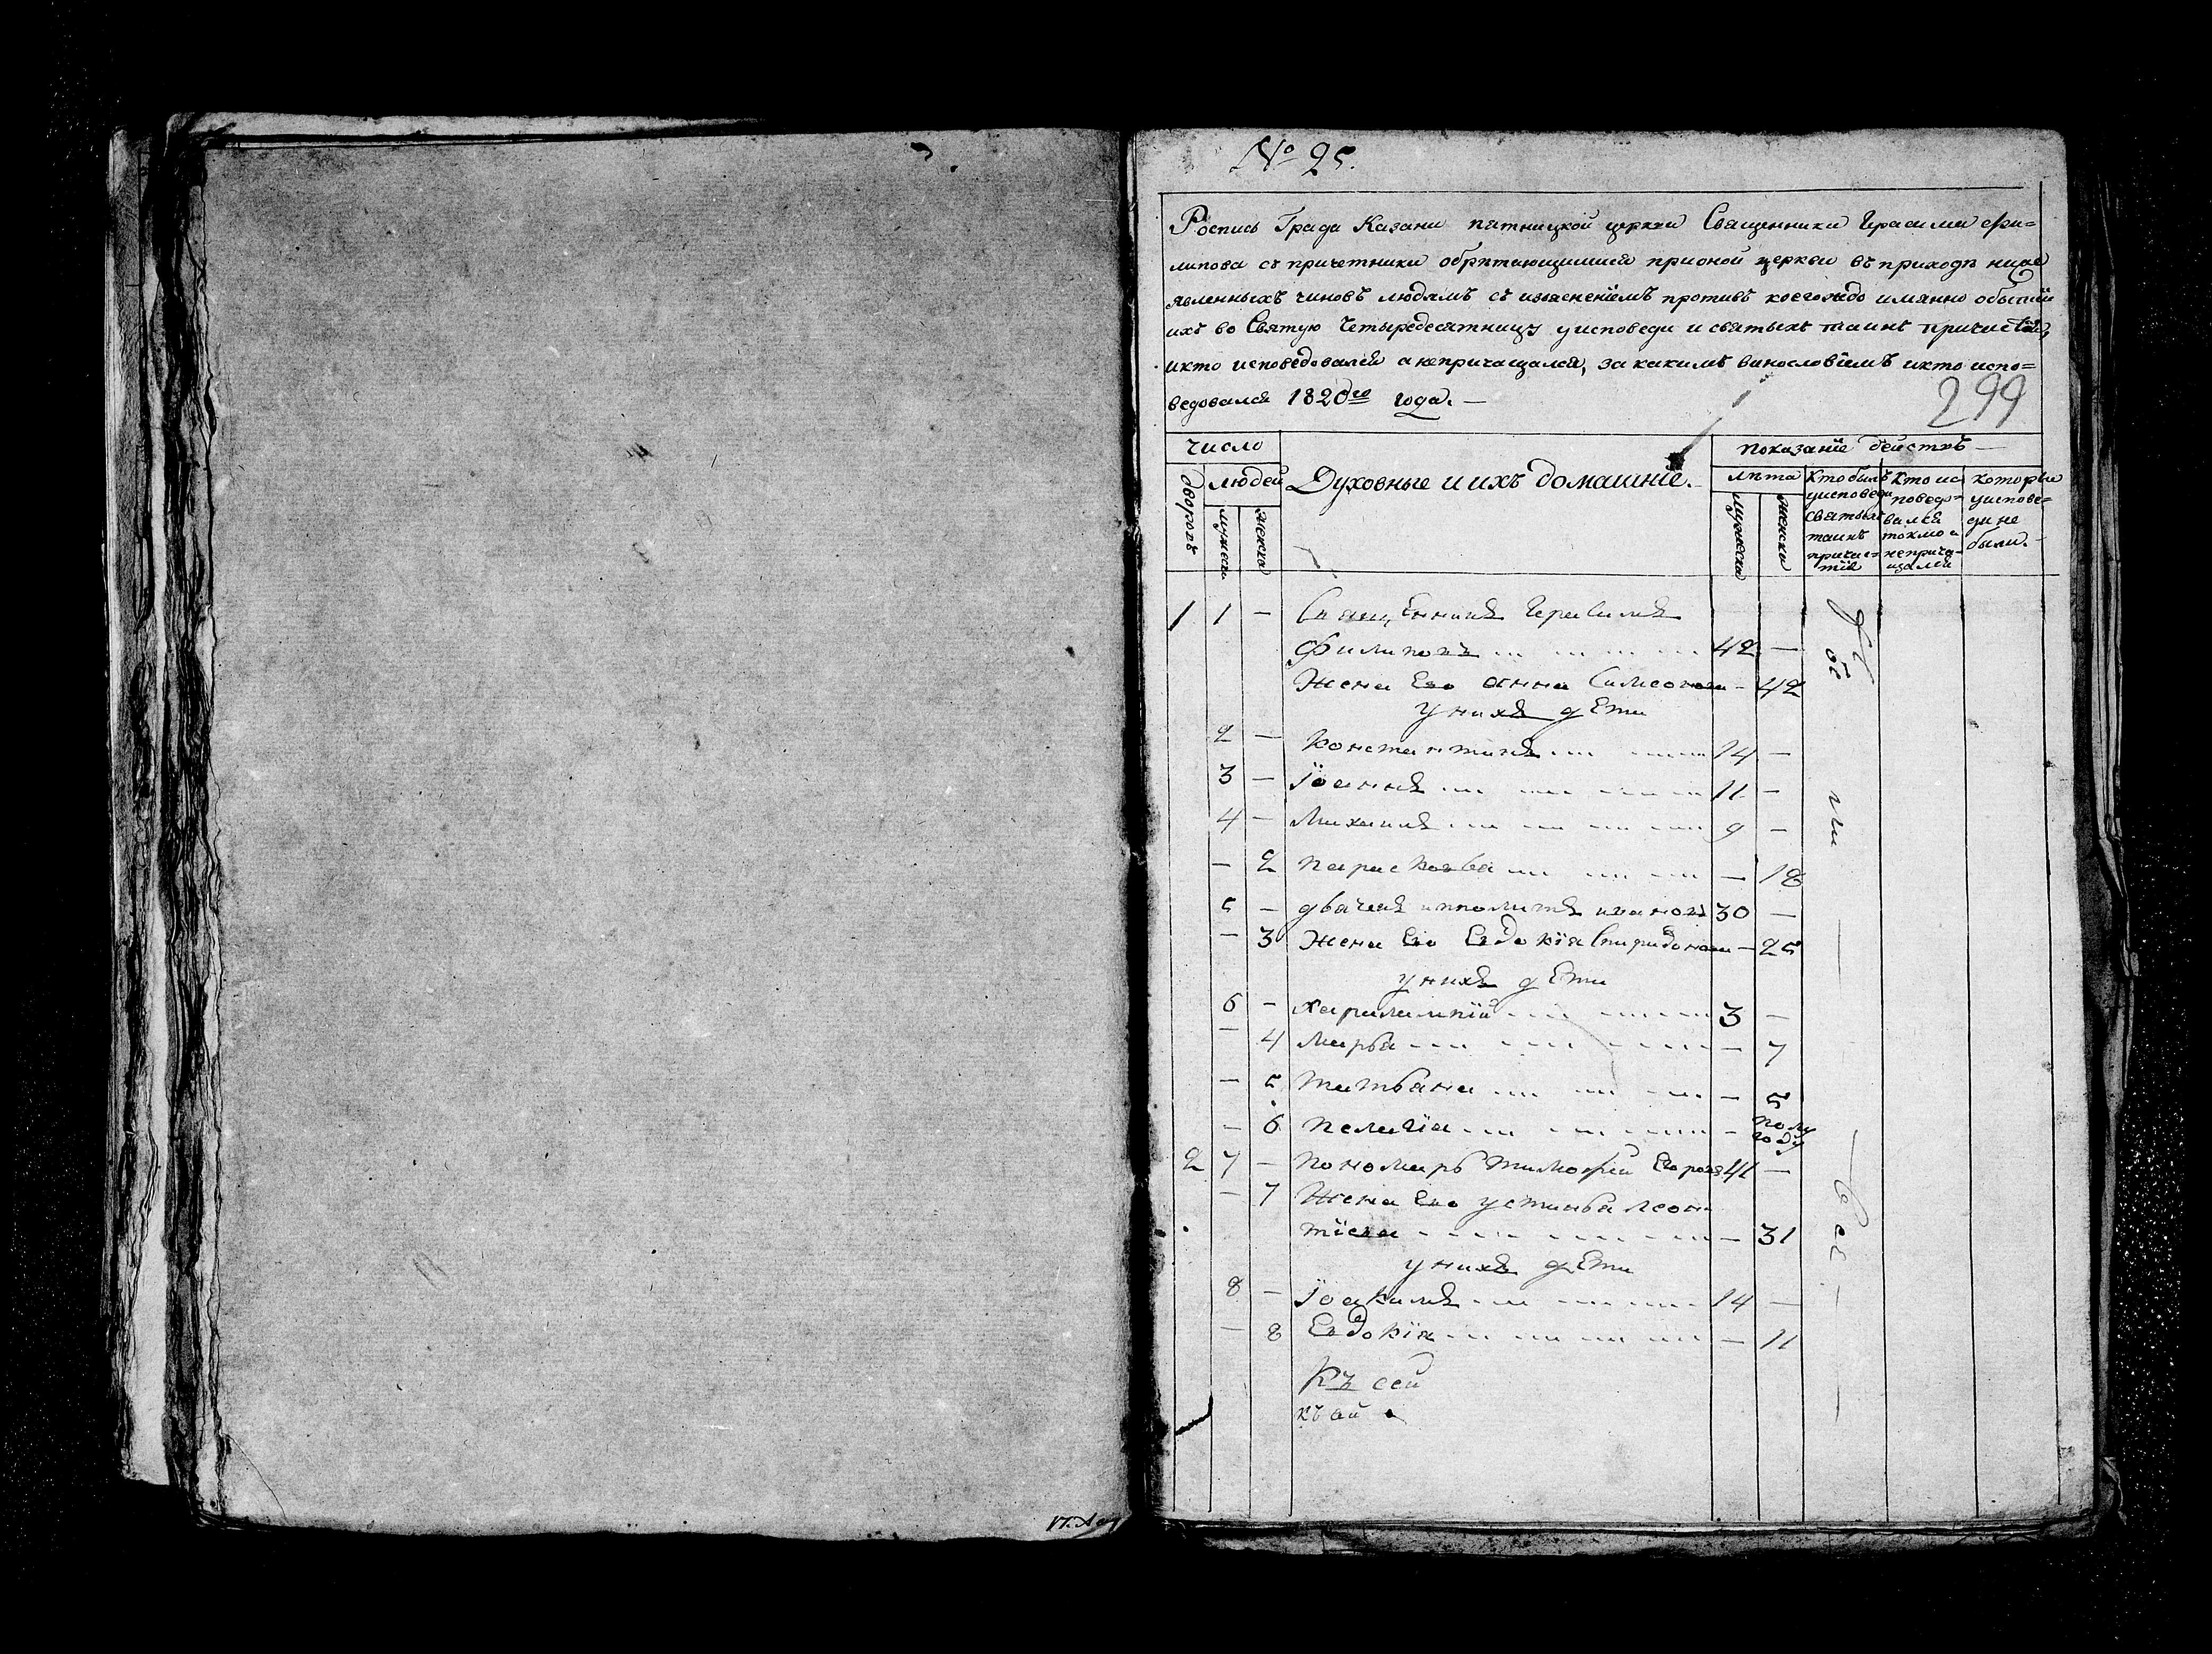 № 25.
Роспись Града Казани пятницкой церкви Священника Герасима Фи=
липова съ причетники обрѣтающимися прионой церкви въ приходѣ ниже
явленныхъ чиновъ людямъ съ изъясненіемъ противъ коегождо имянно обытіи
ихъ во Святую Четыредесятницу уисповеди и святыхъ таинъ причастія,
икто исповедовался анепричащался, за какимъ винословіемъ икто испо=
ведовался 1820го года. —
299
число
показаніе действъ —
дворовъ
людей
Духовные и ихъ домашніе. —
лѣта
мужеска
женска
мужеска
женска
Кто былъ уисповеди святыхъ таинъ причастія
Кто исповедовался токмо а непричащался
которые уисповеди не были. —
1 1 — Священникъ Герасимъ
Филиповъ 42 —
Жена Его Анна Симеонова — 42
у нихъ дЕти
2 — Константинъ 14 —
3 — Іоаннъ 11 —
4 — Михаилъ 9 —
— 2 парасковья — 18
5 — дьячекъ ипполитъ ивановъ 30 —
— 3 Жена Его Евдокія Спиридонова — 25
у нихъ дЕти
6 — харалампій 3 —
— 4 марья — 7
— 5 татьяна — 5
— 6 пелагія — полу
году
2 7 — пономарь тимофей Егоровъ 41 —
— 7 Жена Его устинья леон
тіева — 31
у нихъ дЕти
8 — Іоакимъ 14 —
— 8 Евдокія — 11
Къ сей
къ ай